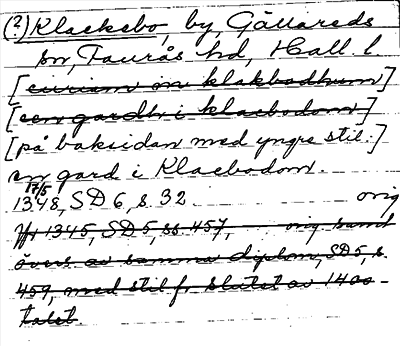 (?) Klackebo, by, Gällareds
sn, Faurås hd, Hall. l
[curiam in klakbodhum]
[een gardh i klaebodom]
[på baksidan med yngre stil:]
en gard i Klaebodom.
17/5
1348, SD 6, s. 32 orig
1345, SD 5, ss. 457, orig samt
övers. av samma diplom, SD 5, s.
459, med stil fr slutet av 1400-
talet.